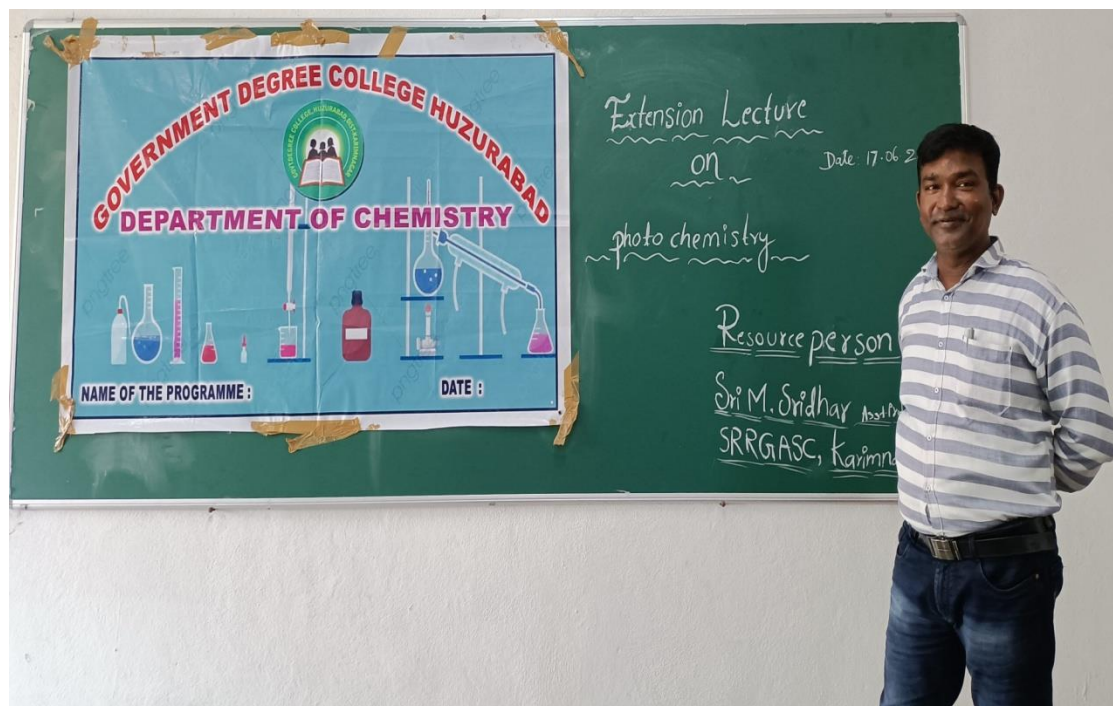 GOVERNMENT DEGREE COLLEGE HUZURABAD
DEPARTMENT OF CHEMISTRY
NAME OF THE PROGRAMME :
DATE :
Extension Lecture
on
Date: 17.06
photo chemistry
Resource person
Sri M. Sridhar
SRRGASC,
pngtree
pngtree
pngtree
pngtree